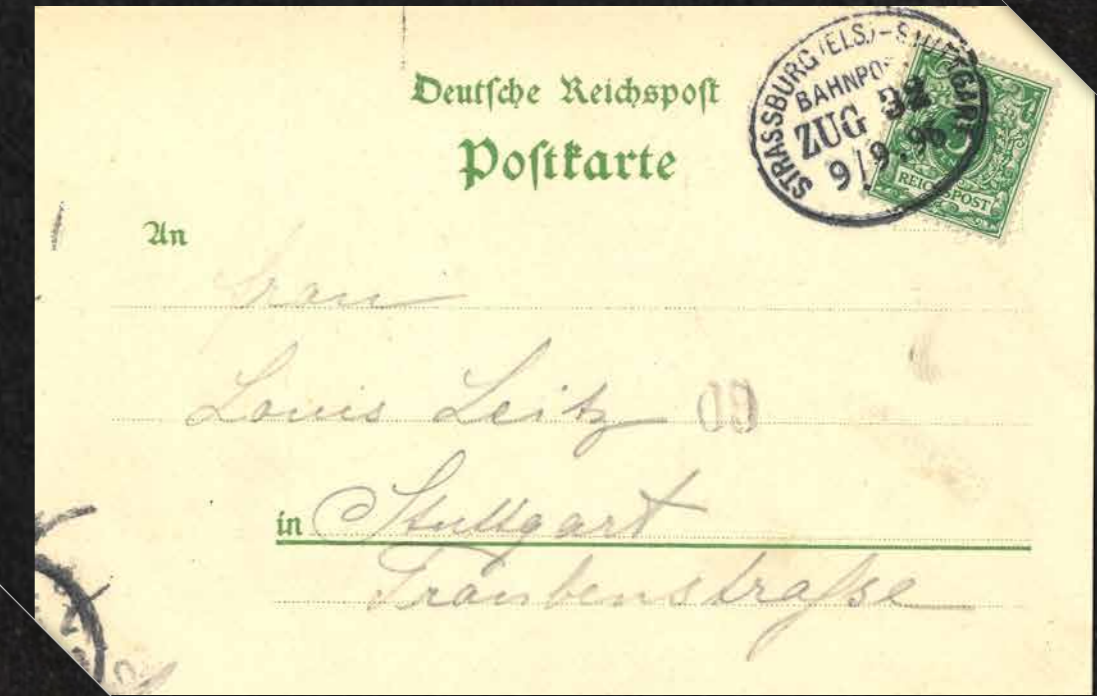 Deutsche Reichspost
Postkarte
STRASSBURG (ELS.) - STUTTGART
BAHNPOST
ZUG 32
9/9.96
REICHSPOST
An
Frau
Louis Leitz
in Stuttgart
Traubenstraſse